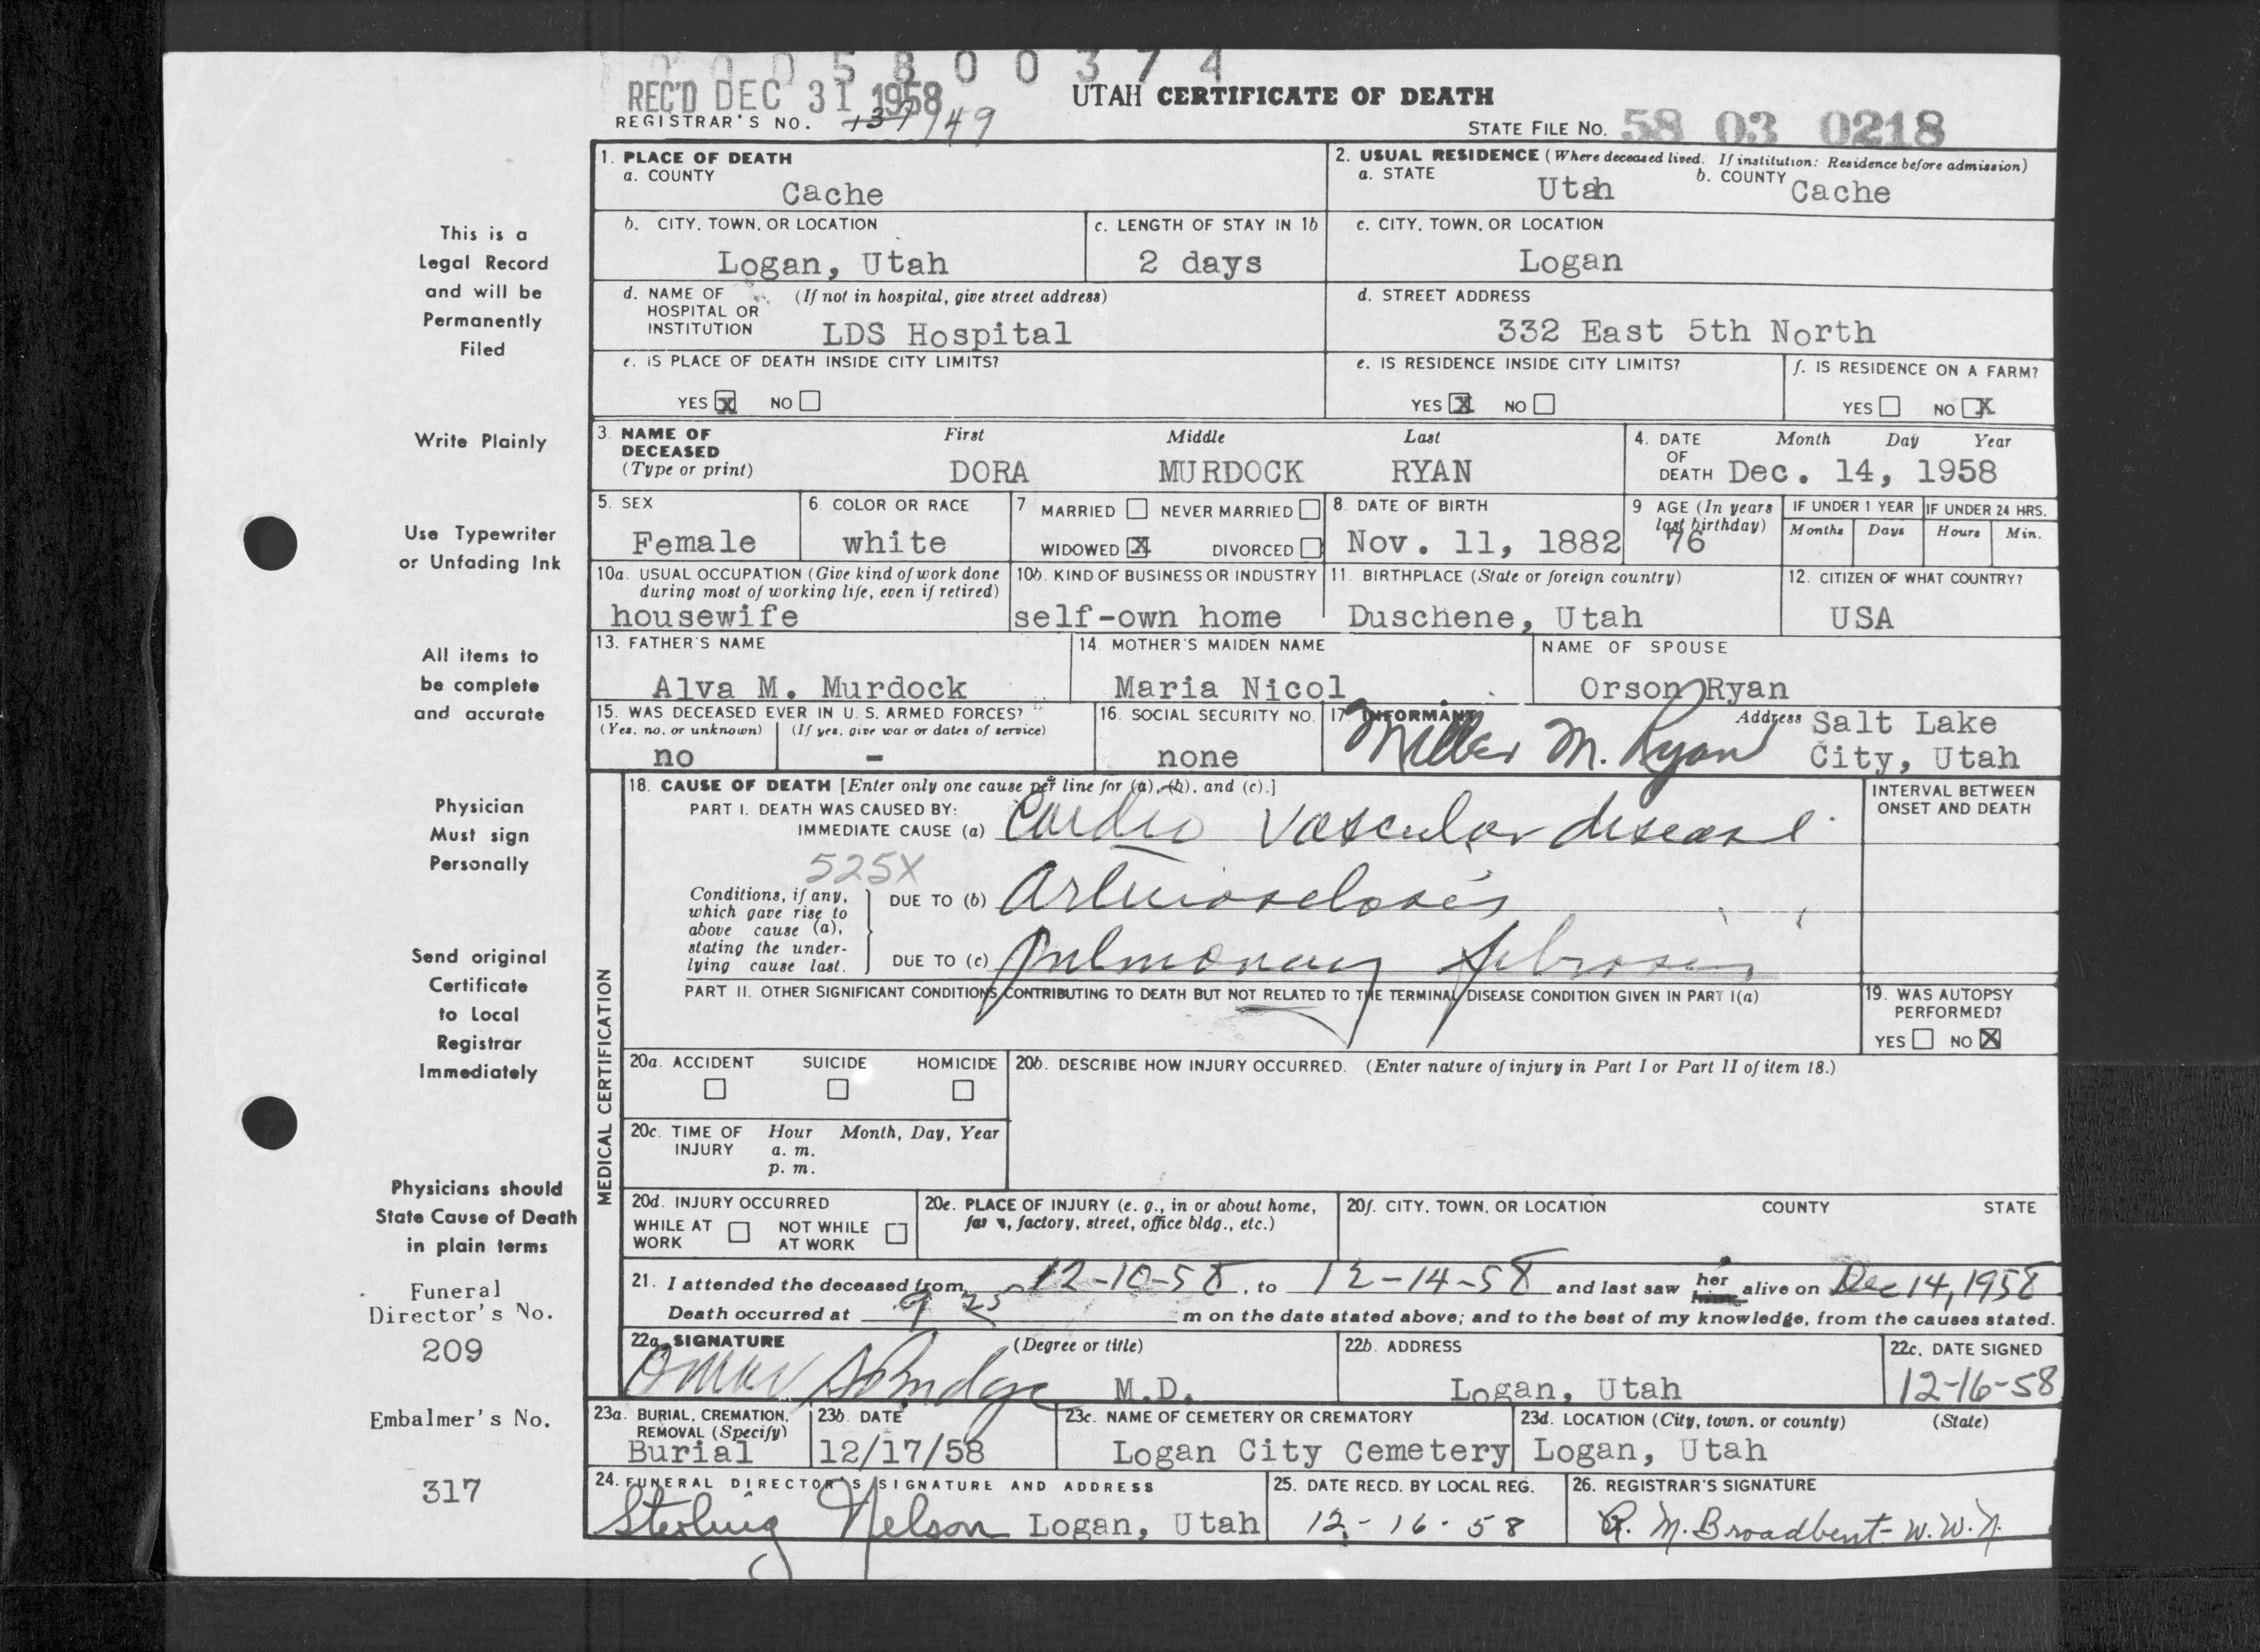 0 0 0 5 8 0 0 3 7 4
REC'D DEC 31 1958
UTAH CERTIFICATE OF DEATH
REGISTRAR'S NO. 137 149
STATE FILE NO. 58 03 0218
This is a
Legal Record
and will be
Permanently
Filed
Write Plainly
Use Typewriter
or Unfading Ink
All items to
be complete
and accurate
Physician
Must sign
Personally
Send original
Certificate
to Local
Registrar
Immediately
Physicians should
State Cause of Death
in plain terms
Funeral
Director's No.
209
Embalmer's No.
317
1. PLACE OF DEATH
a. COUNTY
Cache
2. USUAL RESIDENCE (Where deceased lived. If institution: Residence before admission)
a. STATE Utah b. COUNTY Cache
b. CITY, TOWN, OR LOCATION
Logan, Utah
c. LENGTH OF STAY IN 1b
2 days
c. CITY, TOWN, OR LOCATION
Logan
d. NAME OF (If not in hospital, give street address)
HOSPITAL OR
INSTITUTION LDS Hospital
d. STREET ADDRESS
332 East 5th North
e. IS PLACE OF DEATH INSIDE CITY LIMITS?
YES X NO
e. IS RESIDENCE INSIDE CITY LIMITS?
YES X NO
f. IS RESIDENCE ON A FARM?
YES NO X
3. NAME OF DECEASED
(Type or print)
First Middle Last
DORA MURDOCK RYAN
4. DATE OF DEATH
Month Day Year
Dec. 14, 1958
5. SEX
Female
6 COLOR OR RACE
white
7 MARRIED NEVER MARRIED
WIDOWED X DIVORCED
8. DATE OF BIRTH
Nov. 11, 1882
9 AGE (In years
last birthday)
76
IF UNDER 1 YEAR
Months Days
IF UNDER 24 HRS.
Hours Min.
10a. USUAL OCCUPATION (Give kind of work done
during most of working life, even if retired)
housewife
10b. KIND OF BUSINESS OR INDUSTRY
self-own home
11. BIRTHPLACE (State or foreign country)
Duschene, Utah
12. CITIZEN OF WHAT COUNTRY?
USA
13. FATHER'S NAME
Alva M. Murdock
14. MOTHER'S MAIDEN NAME
Maria Nicol
NAME OF SPOUSE
Orson Ryan
15. WAS DECEASED EVER IN U. S. ARMED FORCES?
(Yes, no, or unknown) (If yes, give war or dates of service)
no -
16. SOCIAL SECURITY NO.
none
17. INFORMANT Address
M. Ryan Salt Lake
City, Utah
MEDICAL CERTIFICATION
18. CAUSE OF DEATH [Enter only one cause per line for (a), (b), and (c).]
PART I. DEATH WAS CAUSED BY:
IMMEDIATE CAUSE (a) Cardio vascular disease
525X
Conditions, if any,
which gave rise to
above cause (a),
stating the under-
lying cause last.
DUE TO (b) Arteriosclosis
DUE TO (c) pulmonary fibrosis
INTERVAL BETWEEN
ONSET AND DEATH
PART II. OTHER SIGNIFICANT CONDITIONS CONTRIBUTING TO DEATH BUT NOT RELATED TO THE TERMINAL DISEASE CONDITION GIVEN IN PART I(a)
19. WAS AUTOPSY
PERFORMED?
YES NO X
20a. ACCIDENT SUICIDE HOMICIDE
20b. DESCRIBE HOW INJURY OCCURRED. (Enter nature of injury in Part I or Part II of item 18.)
20c. TIME OF INJURY
Hour Month, Day, Year
a. m.
p. m.
20d. INJURY OCCURRED
WHILE AT WORK NOT WHILE AT WORK
20e. PLACE OF INJURY (e. g., in or about home,
farm, factory, street, office bldg., etc.)
20f. CITY, TOWN, OR LOCATION COUNTY STATE
21. I attended the deceased from 12-10-58, to 12-14-58 and last saw her him alive on Dec 14, 1958
Death occurred at 9 25 m on the date stated above; and to the best of my knowledge, from the causes stated.
22a. SIGNATURE (Degree or title)
Omar S Budge M.D.
22b. ADDRESS
Logan, Utah
22c. DATE SIGNED
12-16-58
23a. BURIAL, CREMATION,
REMOVAL (Specify)
Burial
23b. DATE
12/17/58
23c. NAME OF CEMETERY OR CREMATORY
Logan City Cemetery
23d. LOCATION (City, town, or county) (State)
Logan, Utah
24. FUNERAL DIRECTOR'S SIGNATURE AND ADDRESS
Sterling Nelson Logan, Utah
25. DATE RECD. BY LOCAL REG.
12-16-58
26. REGISTRAR'S SIGNATURE
R. M. Broadbent- W.W.N.